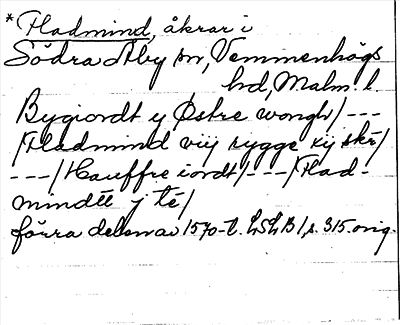 *Fladmind, åkrar i
Södra Åby sn, Vemmenhögs
hd, Malm. l
Bygiordt y Østre wongh/ ---
/Fladmind viij rygge xij skr/
---/Hauffre iordt/ ---/Flad-
mindtt j te/
förra delen av 1570-t. LSLB1, s. 315. orig.